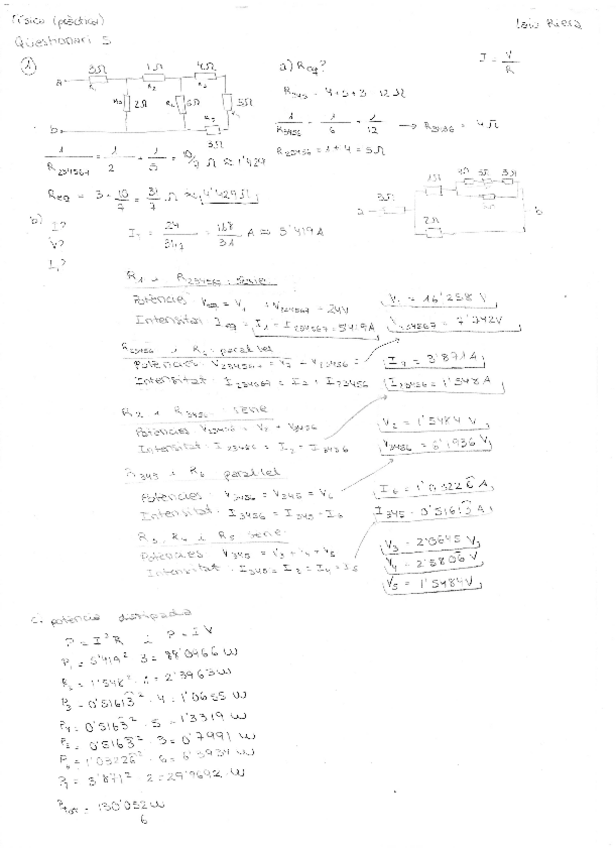 Física (pràctica)
Qüestionari 5
1
a) Req?
I = V/R
3Ω 1Ω 4Ω
a R1 R2 R3
R7 2Ω R6 6Ω 5Ω
b 3Ω
R345 = 4+5+3 = 12Ω
1/R3456 = 1/6 + 1/12 → R3456 = 4Ω
R23456 = 1+4 = 5Ω
1/R234567 = 1/2 + 1/5 = 10/7 Ω ≈ 1'429
Req = 3 + 10/7 = 31/7 Ω ≈ 4'429Ω
3Ω 1Ω 4Ω 5Ω 3Ω
a b
2Ω
b) I?
V?
I1 = 24/31/7 = 168/31 A ≈ 5'419A
R1 i R234567: sèrie
Potències Veq = V1 + V234567 = 24V
V1 = 16'258 V
Intensitat Ieq = I1 = I234567 = 5'419A
V234567 = 7'742V
R23456 i R7: paral·lel
Potències: V234567 = V7 = V23456
I7 = 3'871A
Intensitat: I234567 = I7 + I23456
I23456 = 1'548A
R2 i R3456: sèrie
Potències V23456 = V2 + V3456
V2 = 1'5484 V
Intensitat: I23456 = I2 = I3456
V3456 = 6'1936 V
R345 i R6 paral·lel
Potències: V3456 = V345 = V6
I6 = 1'03226 A
Intensitat: I3456 = I345 + I6
I345 = 0'51613 A
R3, R4 i R5 sèrie
Potències V345 = V3 + V4 + V5
V3 = 2'0645 V
Intensitat: I345 = I3 = I4 = I5
V4 = 2'5806 V
V5 = 1'5484V
c. potència dissipada
P = I²R i P = IV
P1 = 5'419² · 3 = 88'0966 W
P2 = 1'548² · 1 = 2'3963 W
P3 = 0'51613² · 4 = 1'0655 W
P4 = 0'5163² · 5 = 1'3319 W
P5 = 0'5163² · 3 = 0'7991 W
P6 = 1'03226² · 6 = 6'3934 W
P7 = 3'871² · 2 = 29'9692 W
Ptot = 130'052 W
6